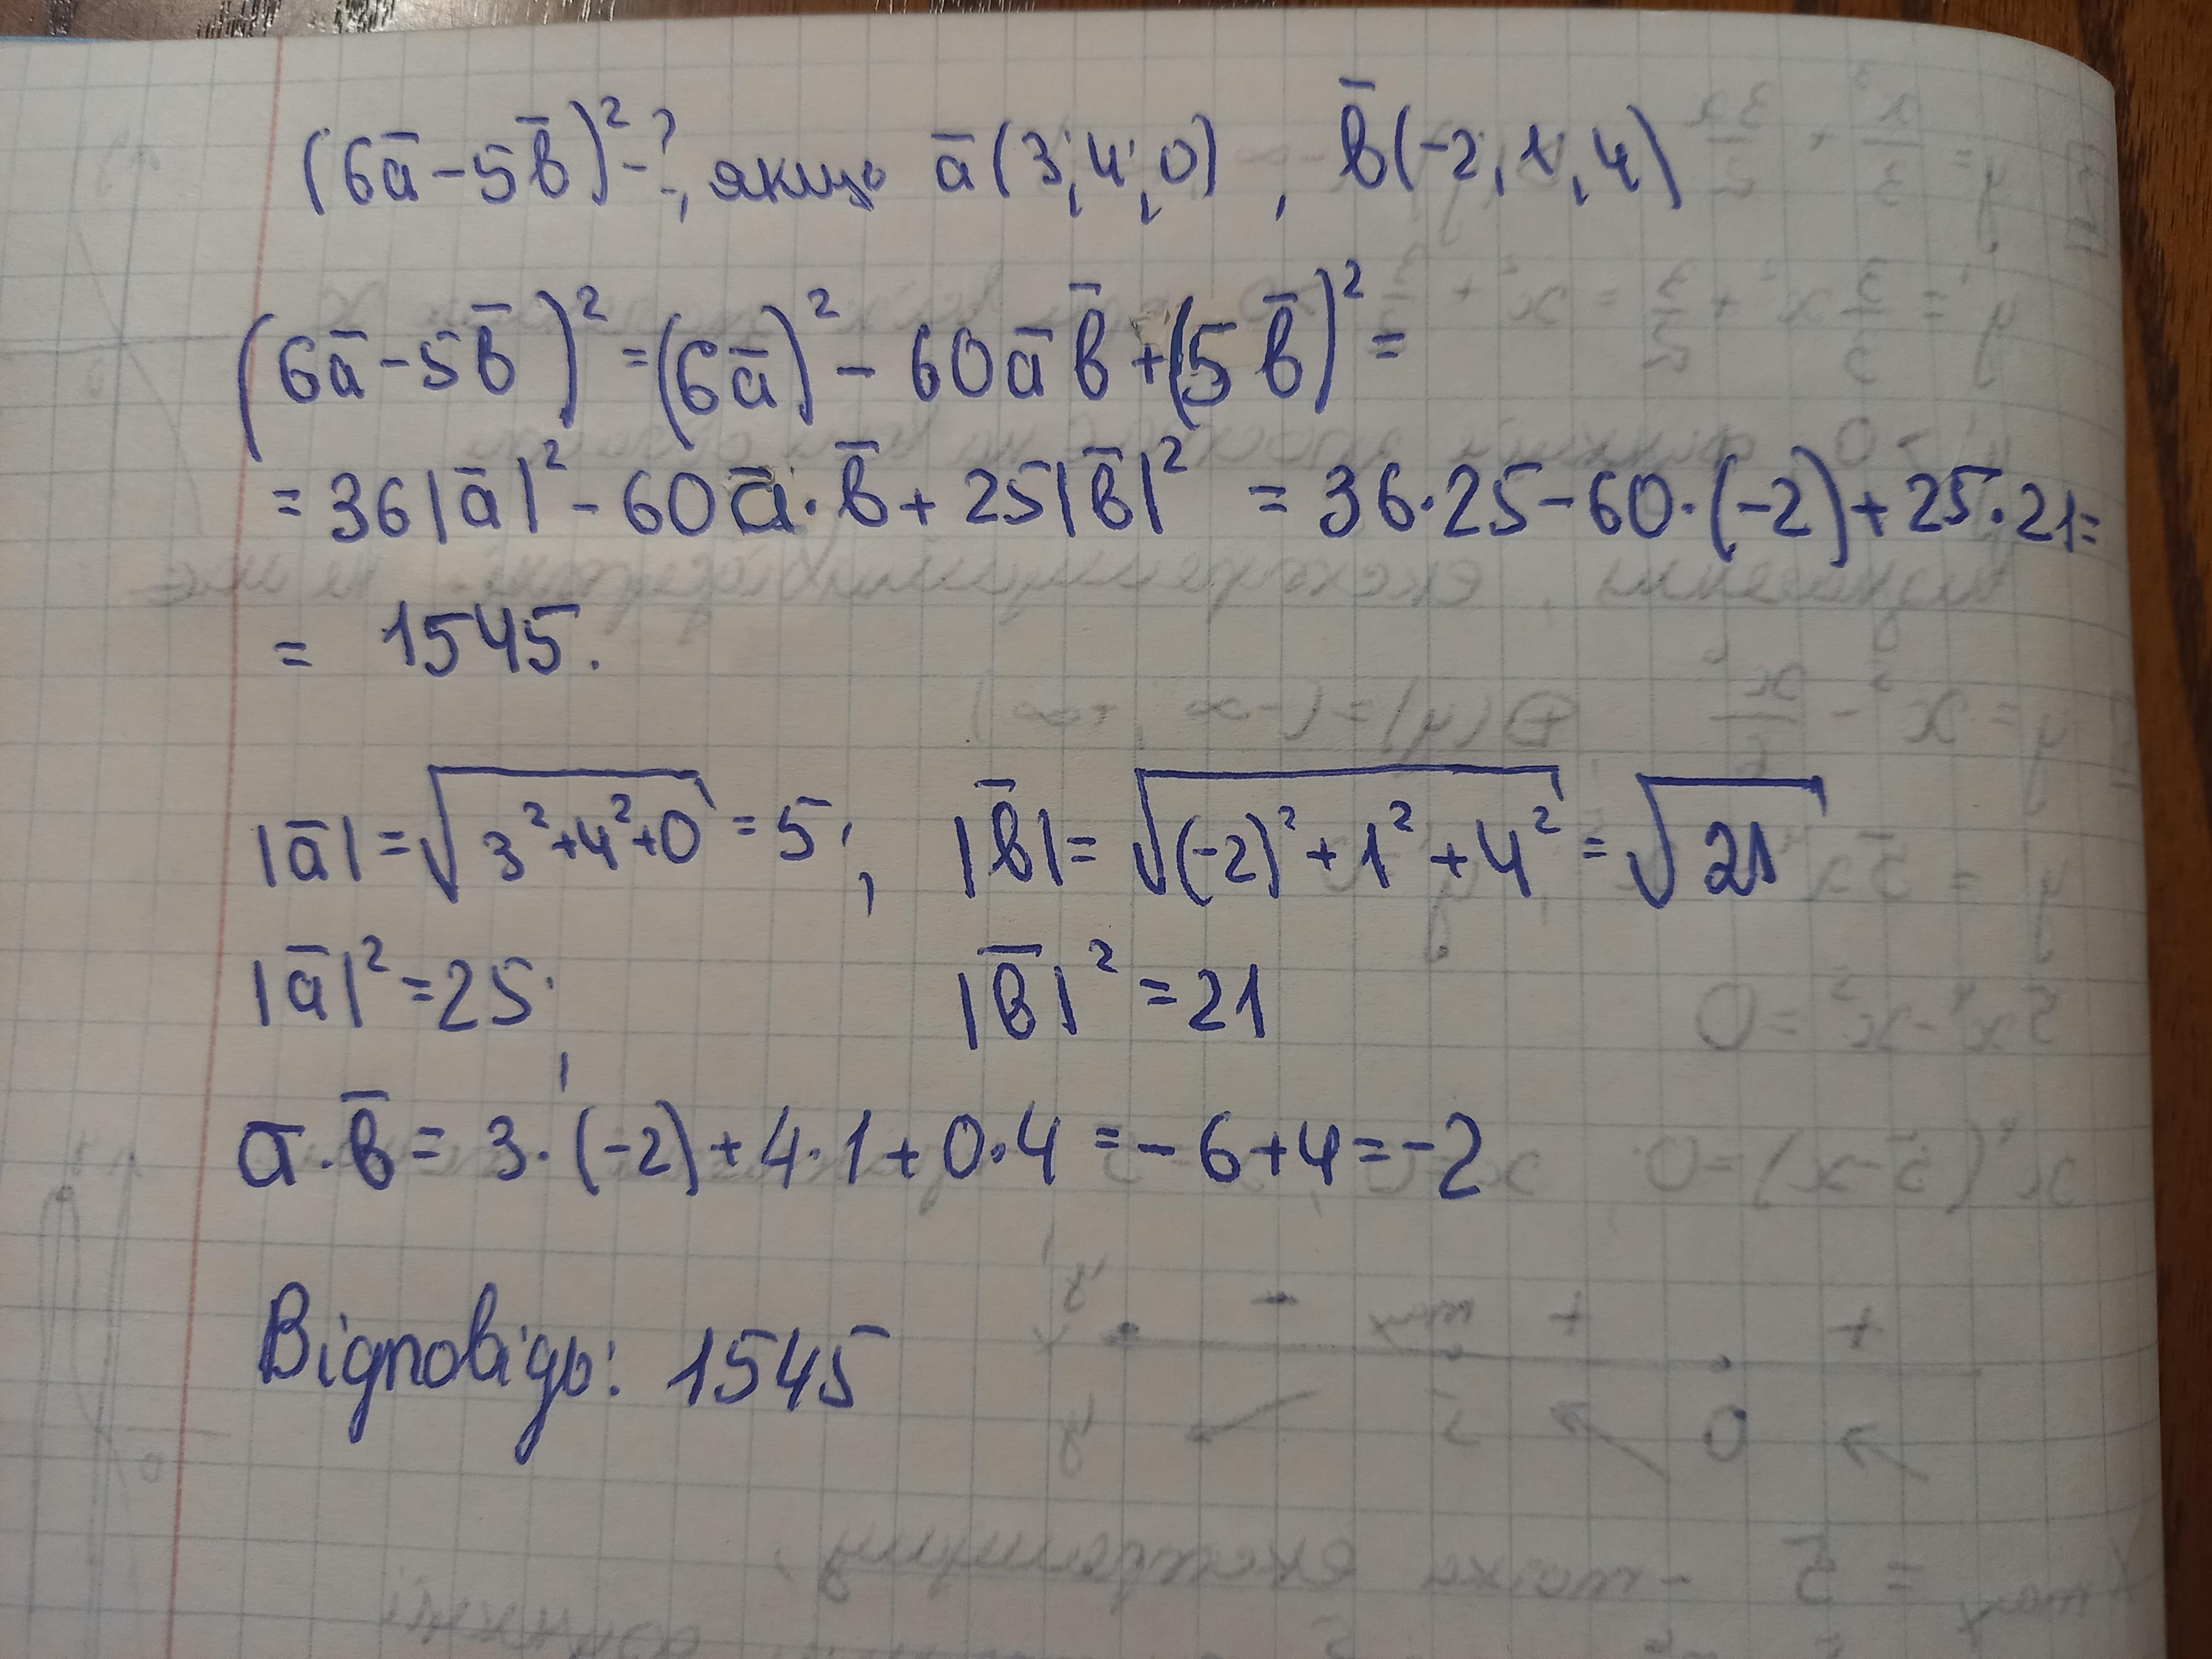 (6a̅ - 5b̅)² - ?, якщо a̅(3; 4; 0), b̅(-2; 1; 4)
(6a̅ - 5b̅)² = (6a̅)² - 60a̅b̅ + (5b̅)² =
= 36|a̅|² - 60a̅·b̅ + 25|b̅|² = 36·25 - 60·(-2) + 25·21 =
= 1545.
|a̅| = √(3²+4²+0) = 5; |b̅| = √((-2)²+1²+4²) = √21
|a̅|² = 25; |b̅|² = 21
a̅·b̅ = 3·(-2) + 4·1 + 0·4 = -6+4 = -2
Відповідь: 1545